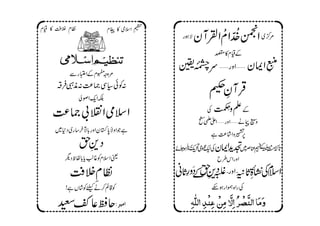 مرکزی انجمن خدام القرآن لاہور
کے قیام کا مقصد
منبع ایمان ---- اور ---- سرچشمۂ یقین
قرآن حکیم
کے علم و حکمت کی
وسیع پیمانے ---- اور ---- اعلیٰ علمی سطح
پر تشہیر و اشاعت ہے
تاکہ امت مسلمہ کے فہیم عناصر میں تجدید ایمان کی ایک عمومی تحریک برپا ہو جائے
اور اس طرح
اسلام کی نشأۃ ثانیہ ---- اور ---- غلبۂ دین حق کے دور ثانی
کی راہ ہموار ہو سکے
وَمَا النَّصْرُ اِلَّا مِنْ عِنْدِ اللّٰهِ
تنظیم اسلامی کا پیغام نظام خلافت کا قیام
تنظیم اسلامی
مروجہ مفہوم کے اعتبار سے
نہ کوئی سیاسی جماعت نہ مذہبی فرقہ
بلکہ ایک اصولی
اسلامی انقلابی جماعت
ہے جو اولاً پاکستان اور بالآخر ساری دنیا میں
دین حق
یعنی اسلام کو غالب یا بالفاظ دیگر
نظام خلافت
کو قائم کرنے کیلئے کوشاں ہے!
امیر: حافظ عاکف سعید